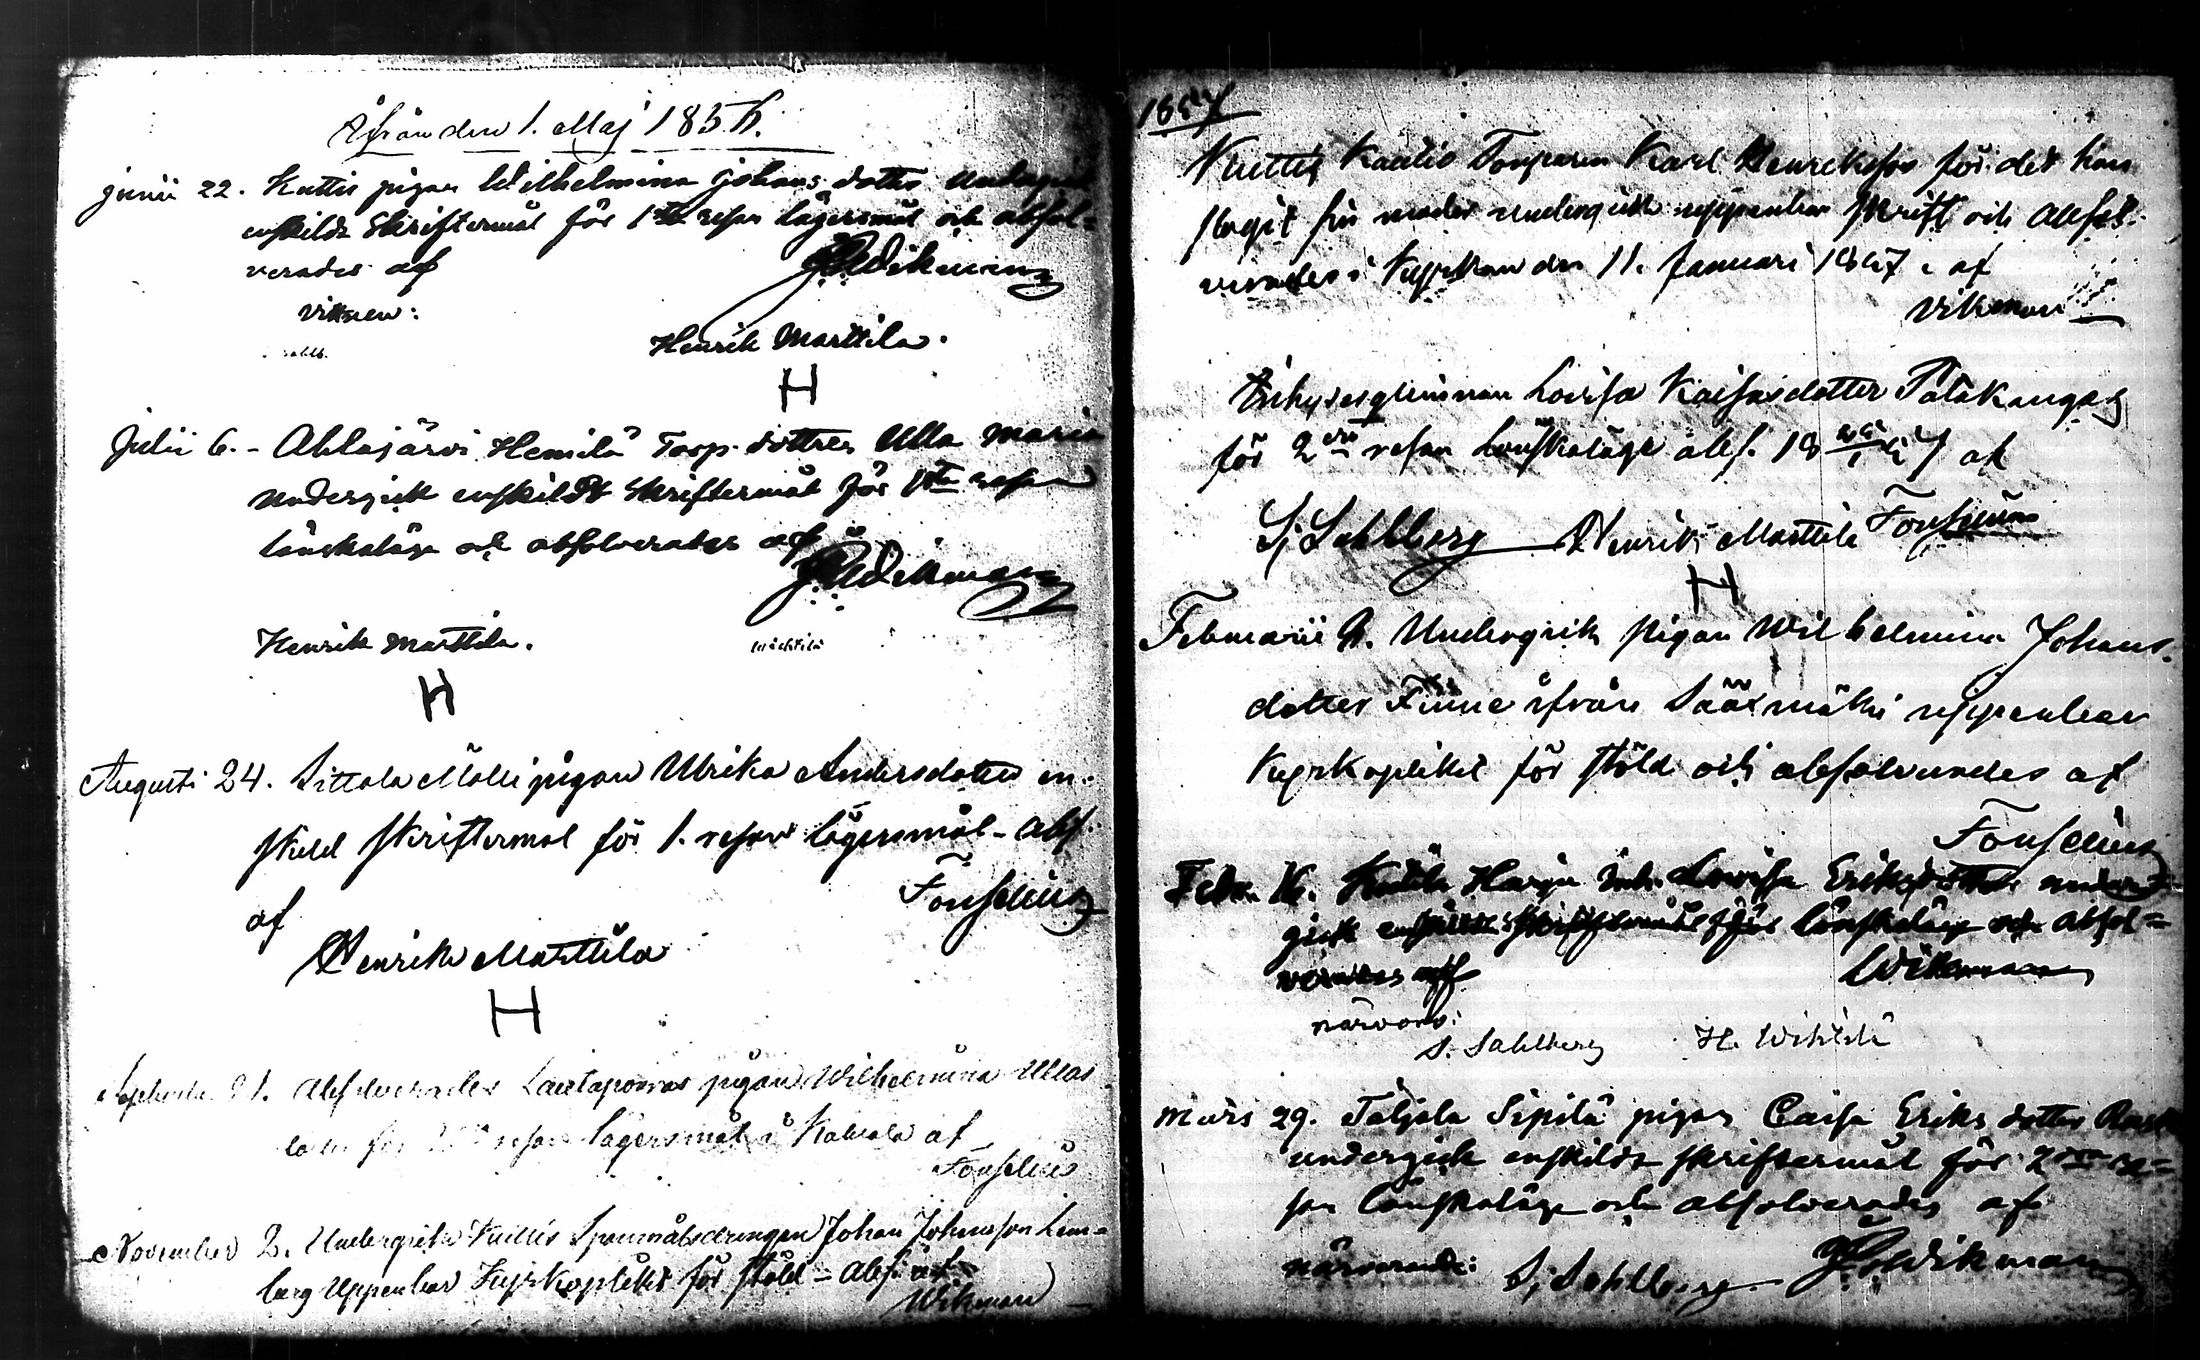 Åfrån den 1. Maj 1856.
Junii 22. Kuttis pigan Wilhelmina Johans dotter undergick
enskildt Skriftermål för 1sta resan lägersmål och absol-
verades af Wikman
vittnen:
Henrik Marttila.
H
Julii 6. - Ahlajärvi Hemilä Torp. dottren Ulla Maria
undergick enskildt Skriftermål för 1sta resan
lönskaläge och absolverades af
Wikman
Henrik Marttila.
H
Augusti 24. Sittala Mälli pigan Ulrika Andersdotter en-
skild skriftermål för 1. resan lägersmål - abs.
af Fonselius
Henrik Marttila
H
September 21. Absolverades pigan Wilhelmina Ullas
resan lägersmål af
Fonselius
November 2. Undergick Kuttis Spannmålsdrengen Johan Johansson Lem-
berg Uppenbar Kyrkoplikt för stöld - Abs. af
Wikman
1857
Kuttis Kaatio Torparen Karl Henriksson för det han
slagit sin moder undergick uppenbar skrift och Absol-
verades i Kyrkan den 11. Januari 1857 af
Vikman
Inhysesqvinnan Lovisa Kaisasdotter Patakangas
för 2dra resan Lönskaläge abs. 18 57 af
Sj Sahlberg Henrik Marttila Fonselius
H
Februarii Undergick pigan Wilhelmina Johans-
dotter Finne ifrån Sääxmäki uppenbar
Kyrkoplikt för stöld och absolverades af
Fonselius
Febr. 16. Harju inh. Lovisa Eriksdotter under-
gick enskildt skriftermål för lönskaläge och absol=
verades af Wikman
närvar:
S. Sahlberg H. Wikkilä
Mars 29. Taljala Sipilä pigan Caisa Eriks dotter
undergick enskildt skriftermål för 2dra re=
san lönskaläge och absolverades af
närvarande: Sj Sahlberg. Wikman